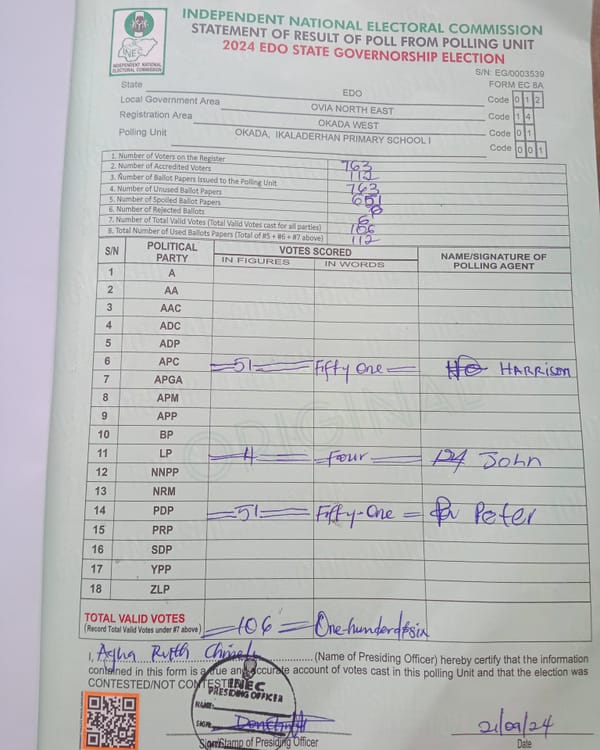 INDEPENDENT NATIONAL ELECTORAL COMMISSION
STATEMENT OF RESULT OF POLL FROM POLLING UNIT
2024 EDO STATE GOVERNORSHIP ELECTION
INEC
INDEPENDENT NATIONAL
ELECTORAL COMMISSION
S/N: EG/0003539
FORM EC 8A
State EDO Code 0 1 2
Local Government Area OVIA NORTH EAST Code 1 4
Registration Area OKADA WEST Code 0 1
Polling Unit OKADA, IKALADERHAN PRIMARY SCHOOL I Code 0 0 1
1. Number of Voters on the Register 763
2. Number of Accredited Voters 112
3. Number of Ballot Papers Issued to the Polling Unit 763
4. Number of Unused Ballot Papers 651
5. Number of Spoiled Ballot Papers
6. Number of Rejected Ballots 6
7. Number of Total Valid Votes (Total Valid Votes cast for all parties) 106
8. Total Number of Used Ballots Papers (Total of #5 + #6 + #7 above) 112
S/N POLITICAL PARTY VOTES SCORED NAME/SIGNATURE OF POLLING AGENT
IN FIGURES IN WORDS
1 A
2 AA
3 AAC
4 ADC
5 ADP
6 APC 51 Fifty One HARRISON
7 APGA
8 APM
9 APP
10 BP
11 LP 4 Four John
12 NNPP
13 NRM
14 PDP 51 Fifty-One Peter
15 PRP
16 SDP
17 YPP
18 ZLP
ORIGINAL
TOTAL VALID VOTES 106
(Record Total Valid Votes under #7 above)
I, Ruth (Name of Presiding Officer) hereby certify that the information
contained in this form is a true and accurate account of votes cast in this polling unit and that the election was
CONTESTED/NOT CONTESTED
INEC
PRESIDING OFFICER
NAME:
SIGN:
Sign/Stamp of Presiding Officer
21/09/24
Date